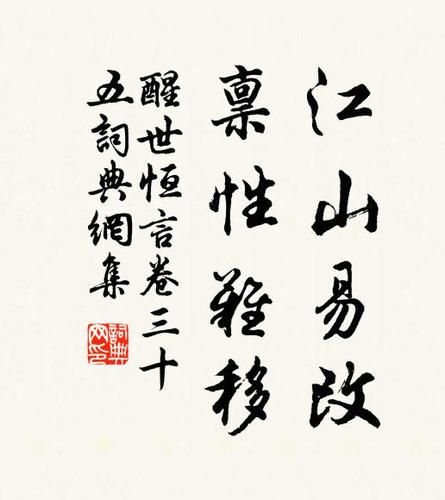 江山易改
禀性難移
醒世恒言卷三十
五詞典網集
詞典
网印